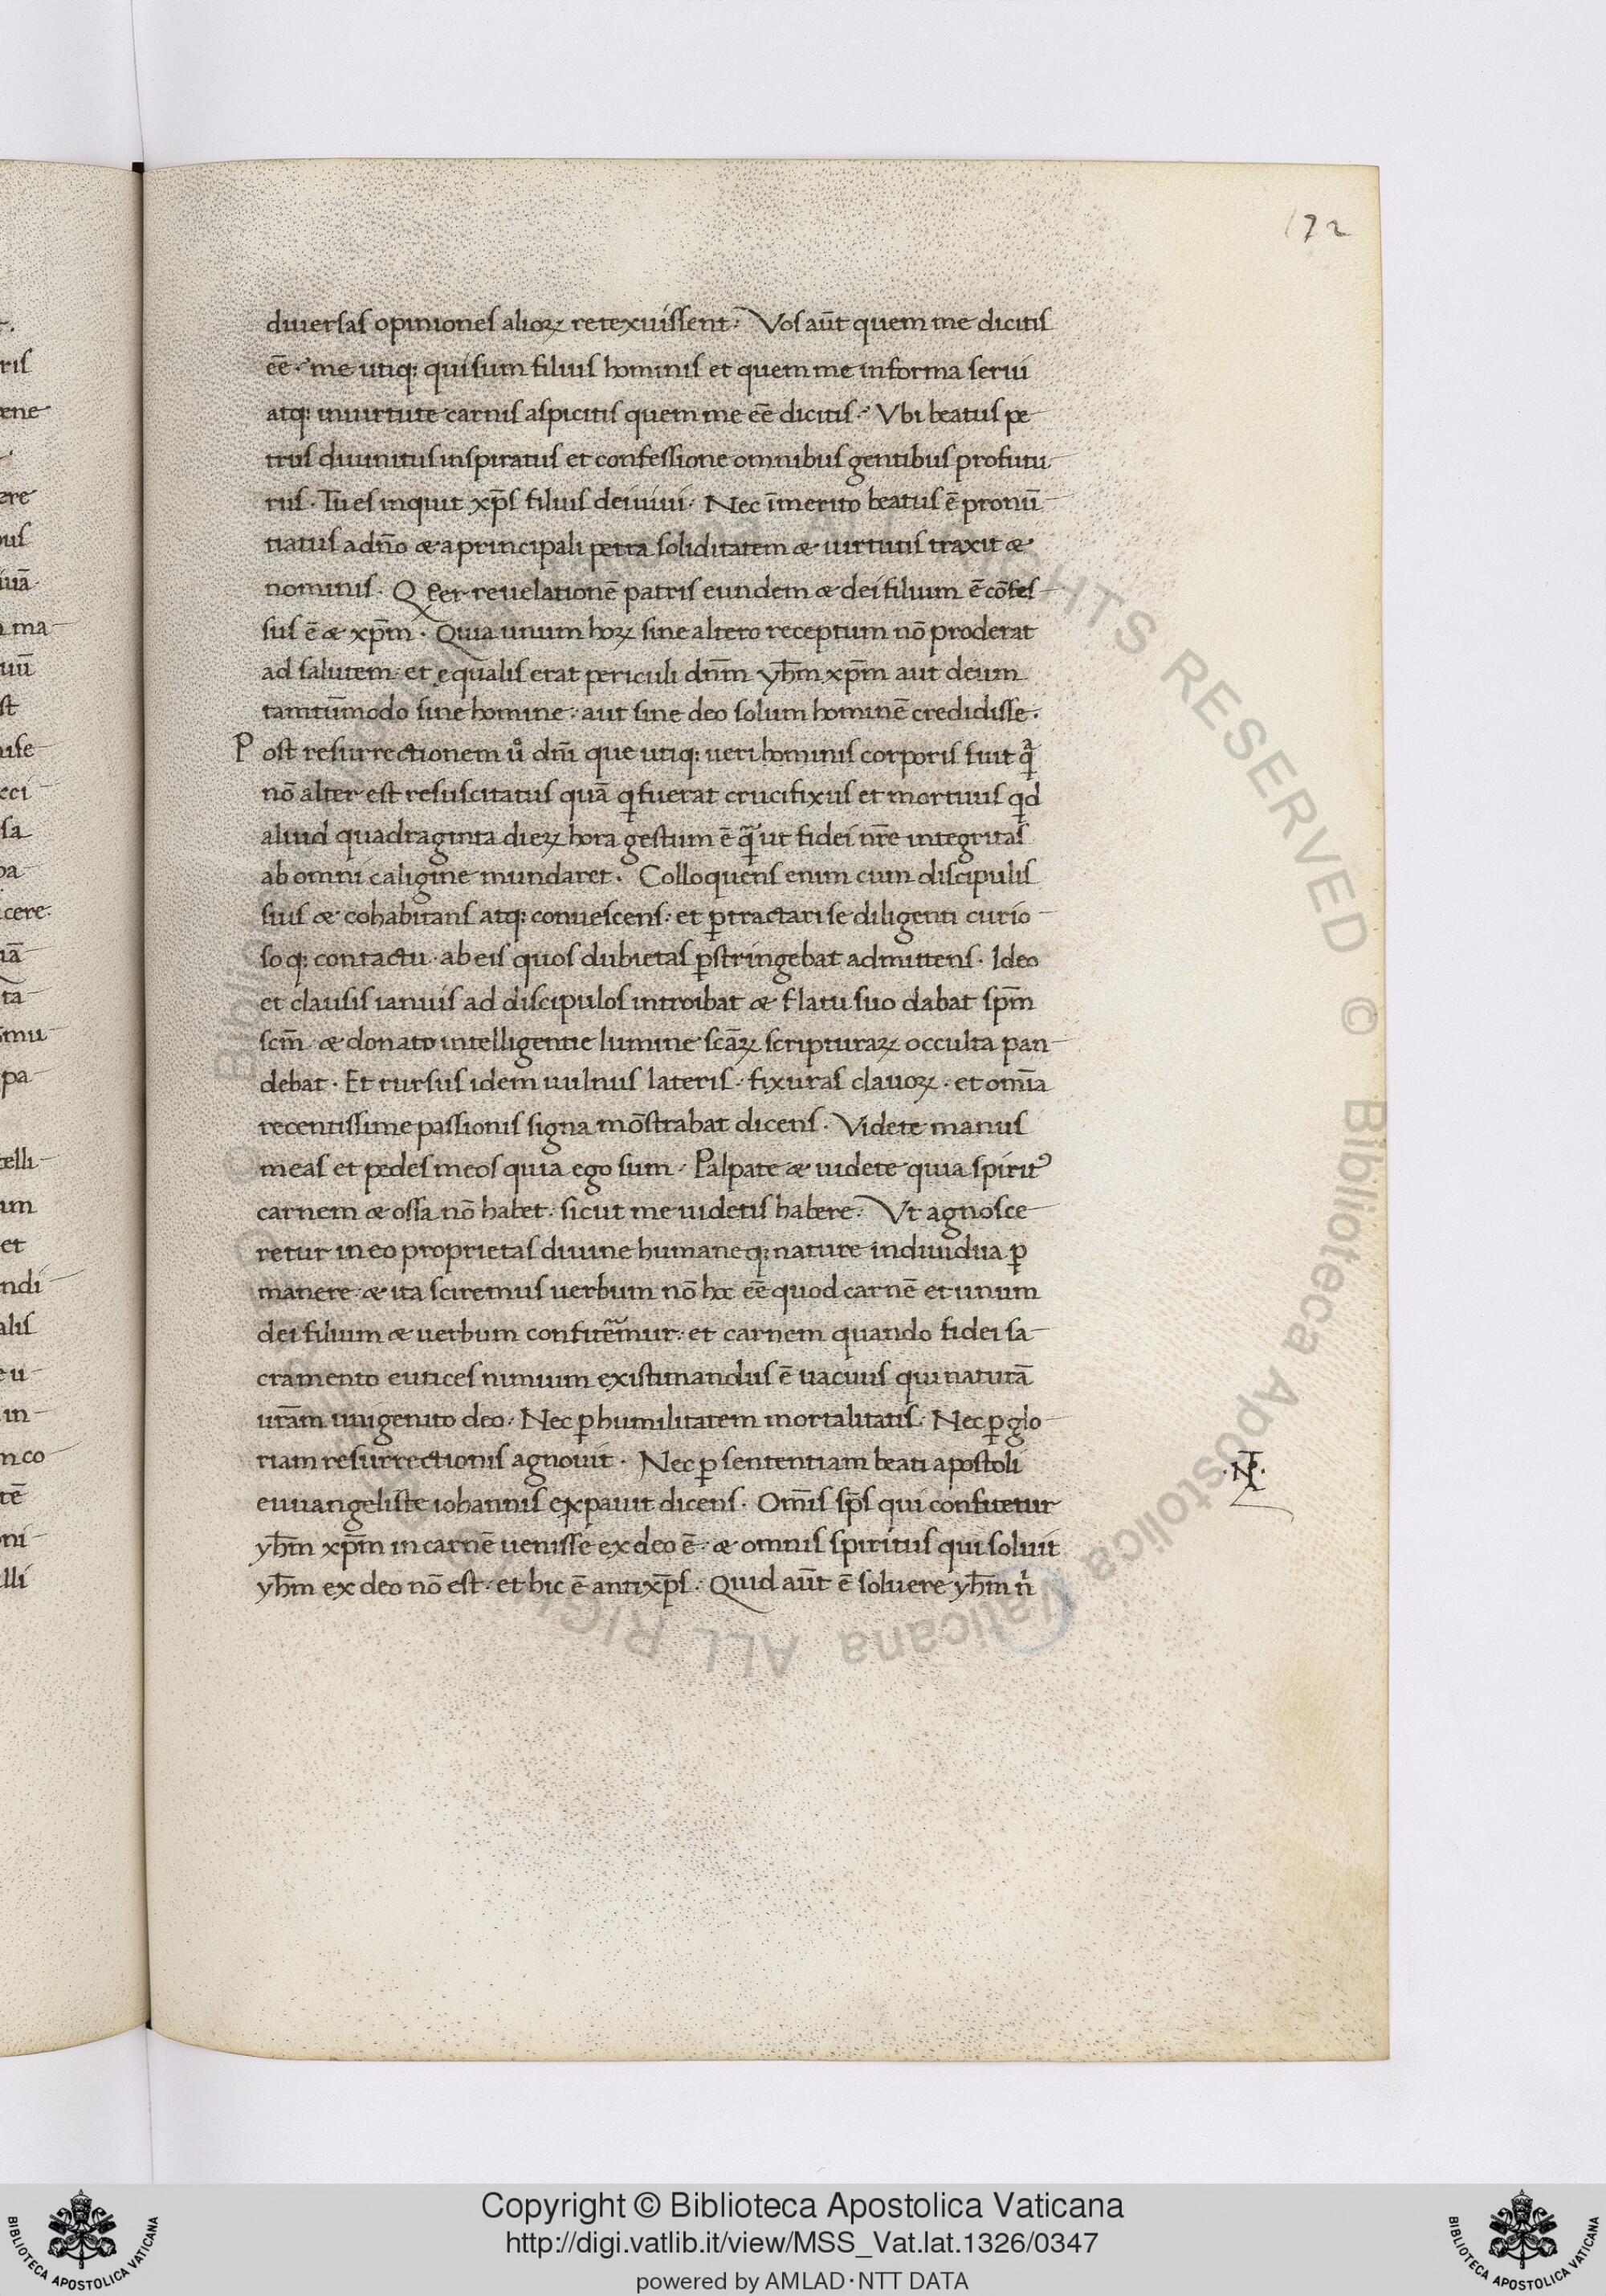 172
diuersas opiniones alioꝝ retexuissent. Vos aūt quem me dicitis
eē. me utiq; qui sum filius hominis et quem me in forma serui
atq; in uirtute carnis aspicitis quem me eē dicitis. Vbi beatus pe
trus diuinitus inspiratus et confessione omnibus gentibus profutu
rus. Tu es inquit xp̄s filius dei uiui. Nec īmerito beatus ē pronū
tiatus a dn̄o & a principali petra soliditatem & uirtutis traxit &
nominis. Q per reuelationē patris eundem & dei filium ē cōfes
sus ē & xp̄m. Quia unum hoꝝ sine altero receptum nō proderat
ad salutem. et ęqualis erat periculi dn̄m yh̄m xp̄m aut deum
tantūmodo sine homine. aut sine deo solum hominē credidisse.
Post resurrectionem uͦ dn̄i que utiq; ueri hominis corporis fuit qͣ
nō alter est resuscitatus quā qͥ fuerat crucifixus et mortuus qͥd
aliud quadraginta dieꝝ hora gestum ē qͣ ut fidei nr̄e integritas
ab omni caligine mundaret. Colloquens enim cum discipulis
suis & cohabitans atq; conuescens. et ꝑtractari se diligenti curio
soq; contactu. ab eis quos dubietas ꝑstringebat admittens. Ideo
et clausis ianuis ad discipulos introibat & flatu suo dabat sp̄m
scm̄. & donato intelligentie lumine scāꝝ scripturaꝝ occulta pan
debat. Et rursus idem uulnus lateris. fixuras clauoꝝ. et omīa
recentissime passionis signa mōstrabat dicens. Videte manus
meas et pedes meos quia ego sum. Palpate & uidete quia spiritꝰ
carnem & ossa nō habet. sicut me uidetis habere. Vt agnosce
retur in eo proprietas diuine humaneq; nature indiuidua ꝑ
manere. & ita sciremus uerbum nō hoc eē quod carnē et unum
dei filium & uerbum confiteamur. et carnem quando fidei sa
cramento eutices nimium existimandus ē uacuus qui naturā
urām unigenito deo. Nec ꝑ humilitatem mortalitatis. Nec ꝑ glo
riam resurrectionis agnouit. Nec ꝑ sententiam beati apostoli
euuangeliste iohannis expauit dicens. Omīs sp̄s qui confitetur
yh̄m xp̄m in carnē uenisse ex deo ē. & omnis spiritus qui soluit
yh̄m ex deo nō est. et hic ē antixp̄s. Quid aūt ē soluere yh̄m nͥ
Copyright © Biblioteca Apostolica Vaticana
http://digi.vatlib.it/view/MSS_Vat.lat.1326/0347
powered by AMLAD·NTT DATA
BIBLIOTECA APOSTOLICA VATICANA
BIBLIOTECA APOSTOLICA VATICANA